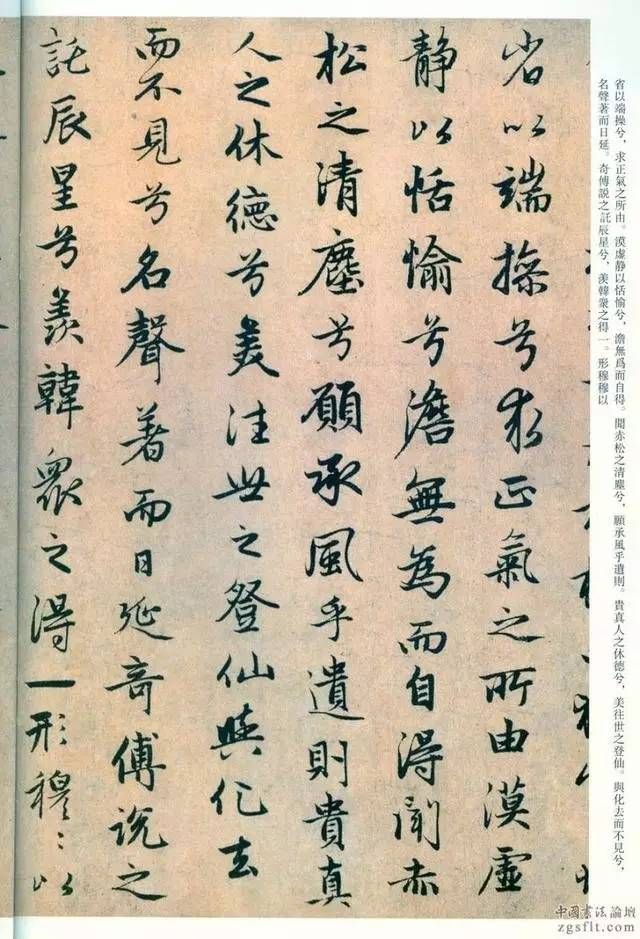 省以端操兮求正氣之所由漠虛
靜以恬愉兮澹無為而自得聞赤
松之清塵兮願承風乎遺則貴真
人之休德兮美往世之登仙與化去
而不見兮名聲著而日延奇傅說之
託辰星兮羨韓衆之得一形穆〻以
省以端操兮，求正氣之所由。漠虛静以恬愉兮，澹無爲而自得。聞赤松之清塵兮，願承風乎遺則。貴真人之休德兮，美往世之登仙。與化去而不見兮，
名聲著而日延。奇傅説之託辰星兮，羨韓衆之得一。形穆穆以
中國書法論壇
zgsflt.com